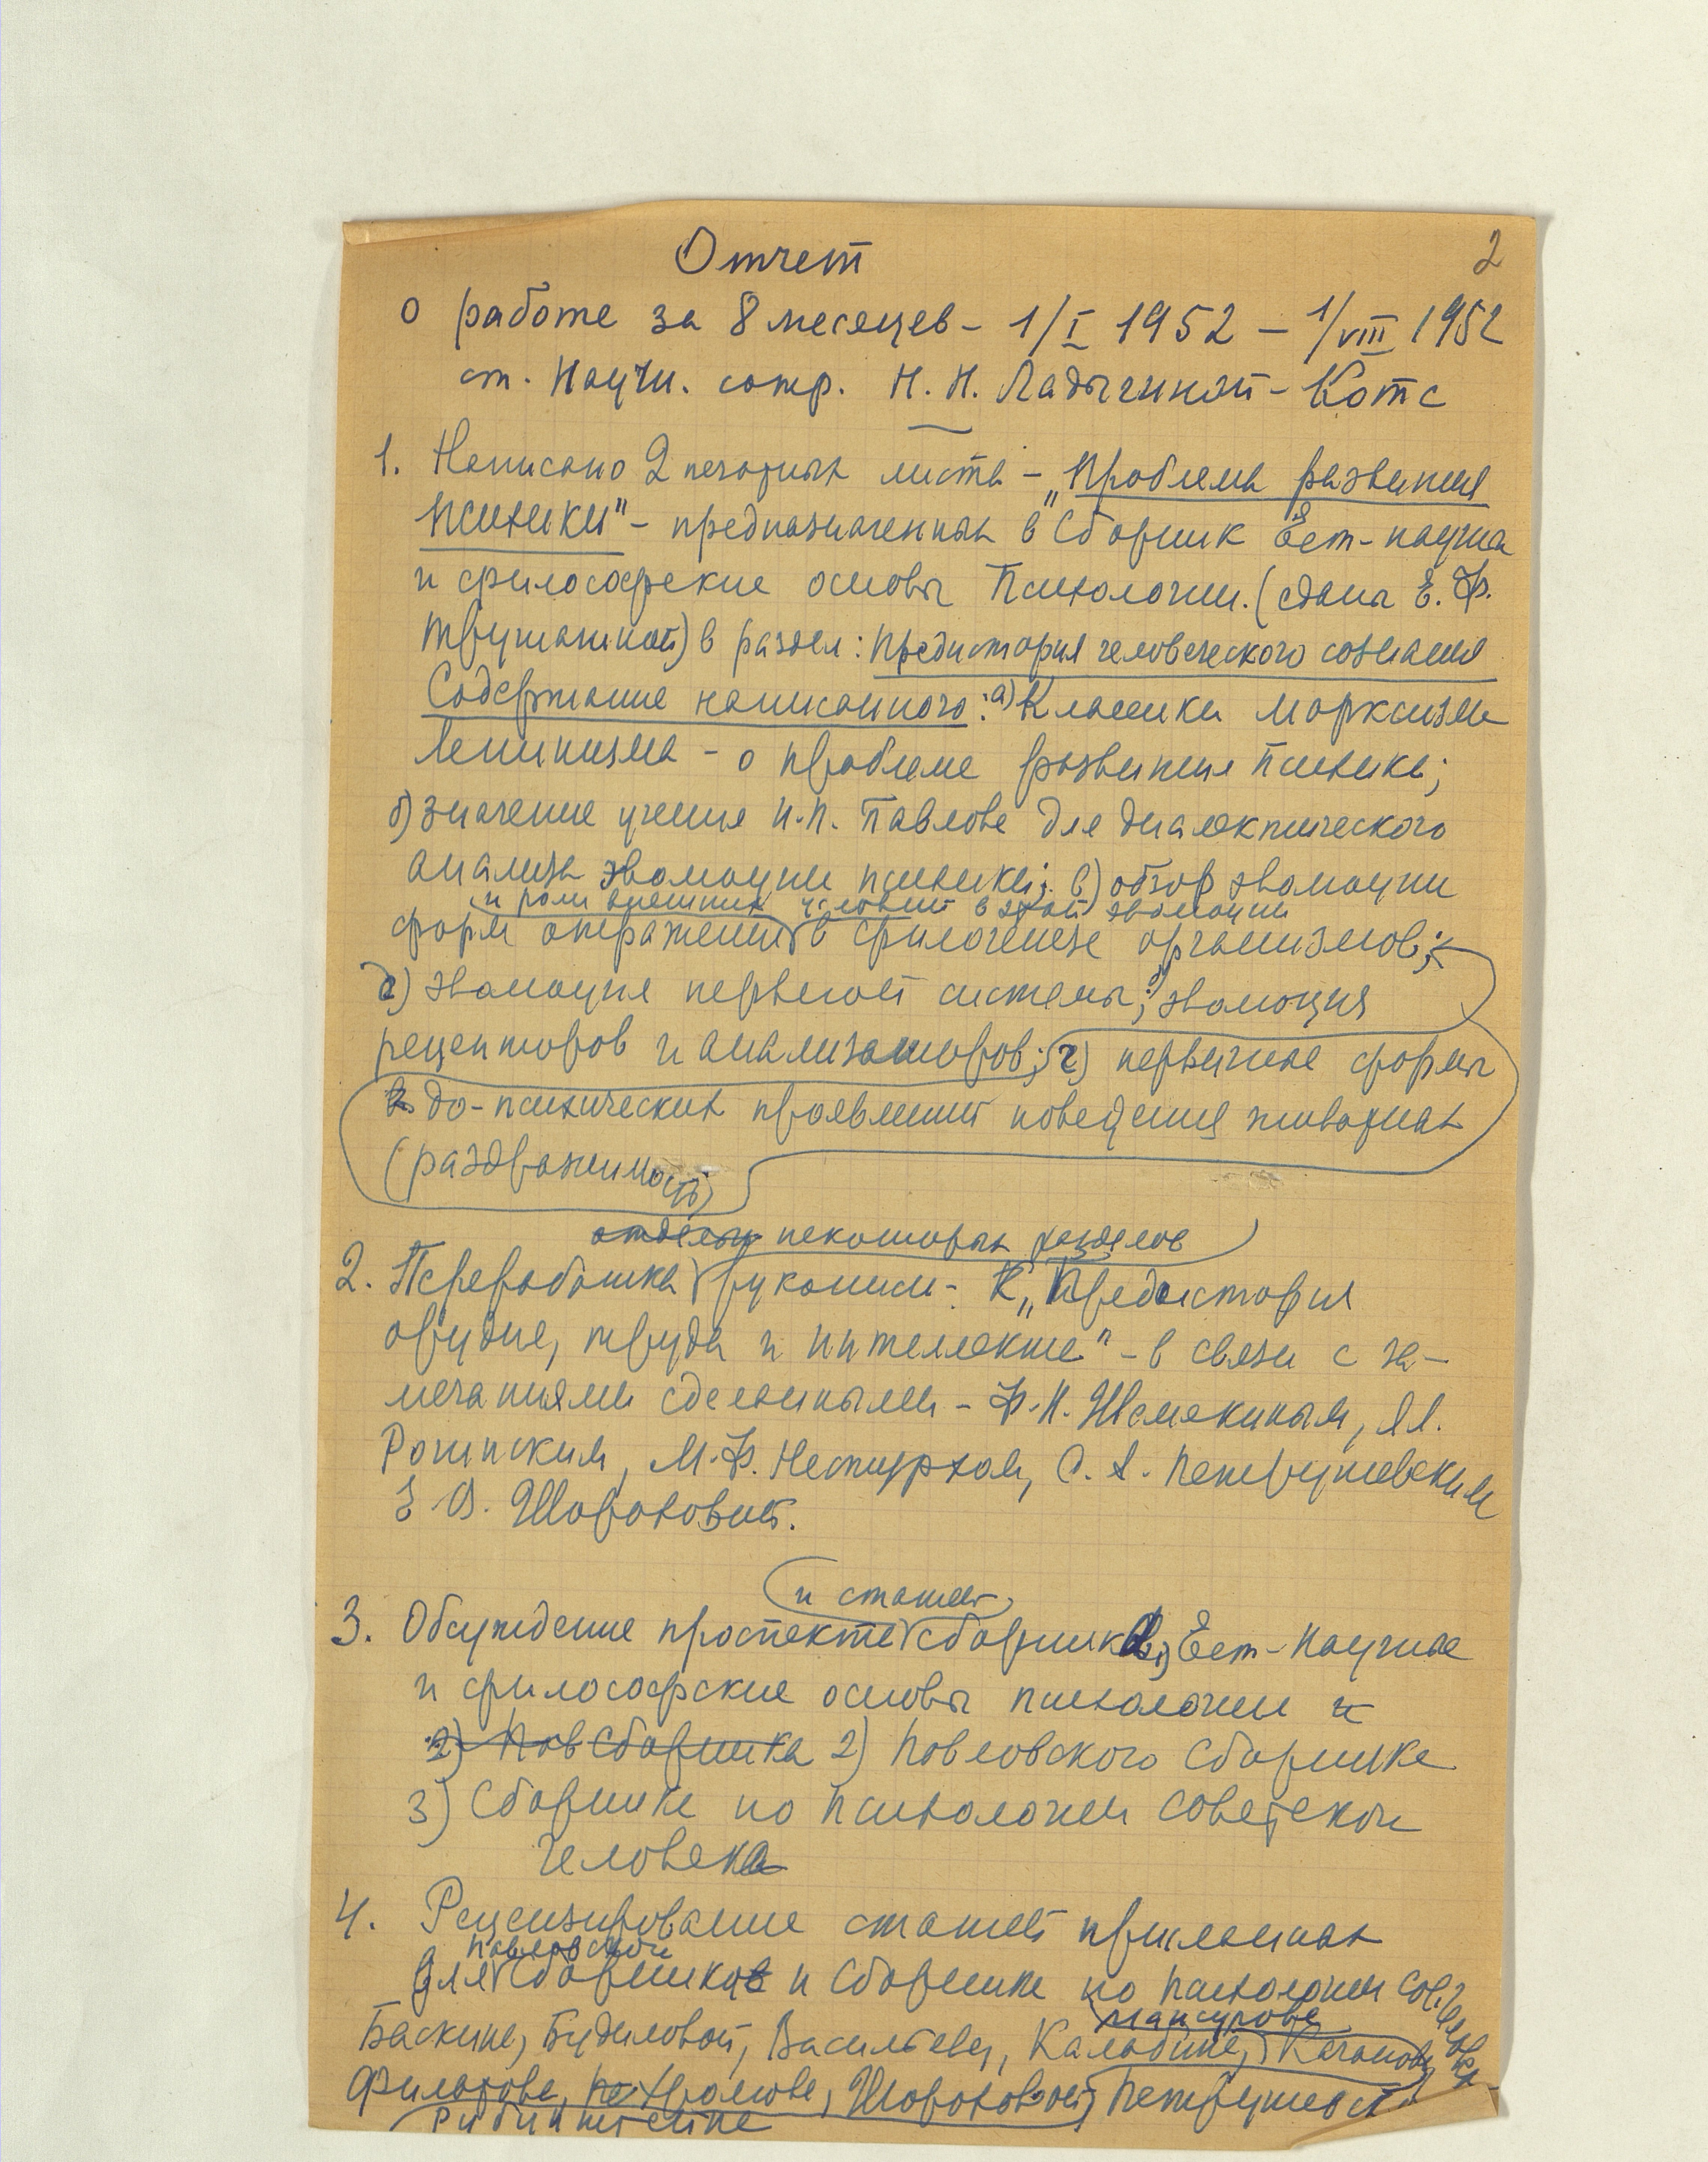 2
Отчет
о работе за 8 месяцев - 1/I 1952 — 1/VIII 1952
ст. научн. сотр. Н. Н. Ладыгиной-Котс
1. Написано 2 печатных листа - „Проблема развития
психики" - предназначенных в Сборник Ест-научн
и философские основы Психологии. (сдана Е. Ф.
) в раздел: Предистория человеческого сознания
Содержание написанного: а) Классики марксизма
Ленинизма - о проблеме развития психики;
б) значение учения И.П. Павлова для диалектического
анализа эволюции психики; в) обзор эволюции
и роли внешних условий в этой эволюции
форм отражения в филогенезе организмов;
д) эволюция нервной системы; эволюция
рецепторов и анализаторов; г) первичные формы
до-психических проявлений поведения животных
(раздражимость)
отделы некоторых разделов
2. Переработка рукописи - К „Предистория
орудия, труда и интеллекта" - в связи с за-
мечаниями сделанными - Ф.Н. Шемякиным, Я.Я.
Рогинским, М.Ф. Нестурхом, С. А. Петрушевским
Э. В. Шороховой.
и статей
3. Обсуждение проспекта сборника Ест-научные
и философские основы психологии и
2) Пав Сборника 2) Павловского Сборника
3) Сборника по психологии советском
человека
4. Рецензирование статей присланных
Павловской
для Сборников и Сборника по психологии Сов. человека
Мансурова
Баскина, Будиловой, Васильева, Калабина, Каганова
Филатова, Храмова, Шороховой, Петрушевск
Рубинштейна